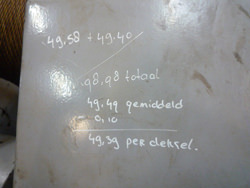 49,58 + 49,40
98,98 totaal
49,49 gemiddeld
0,10
49,59 per deksel.